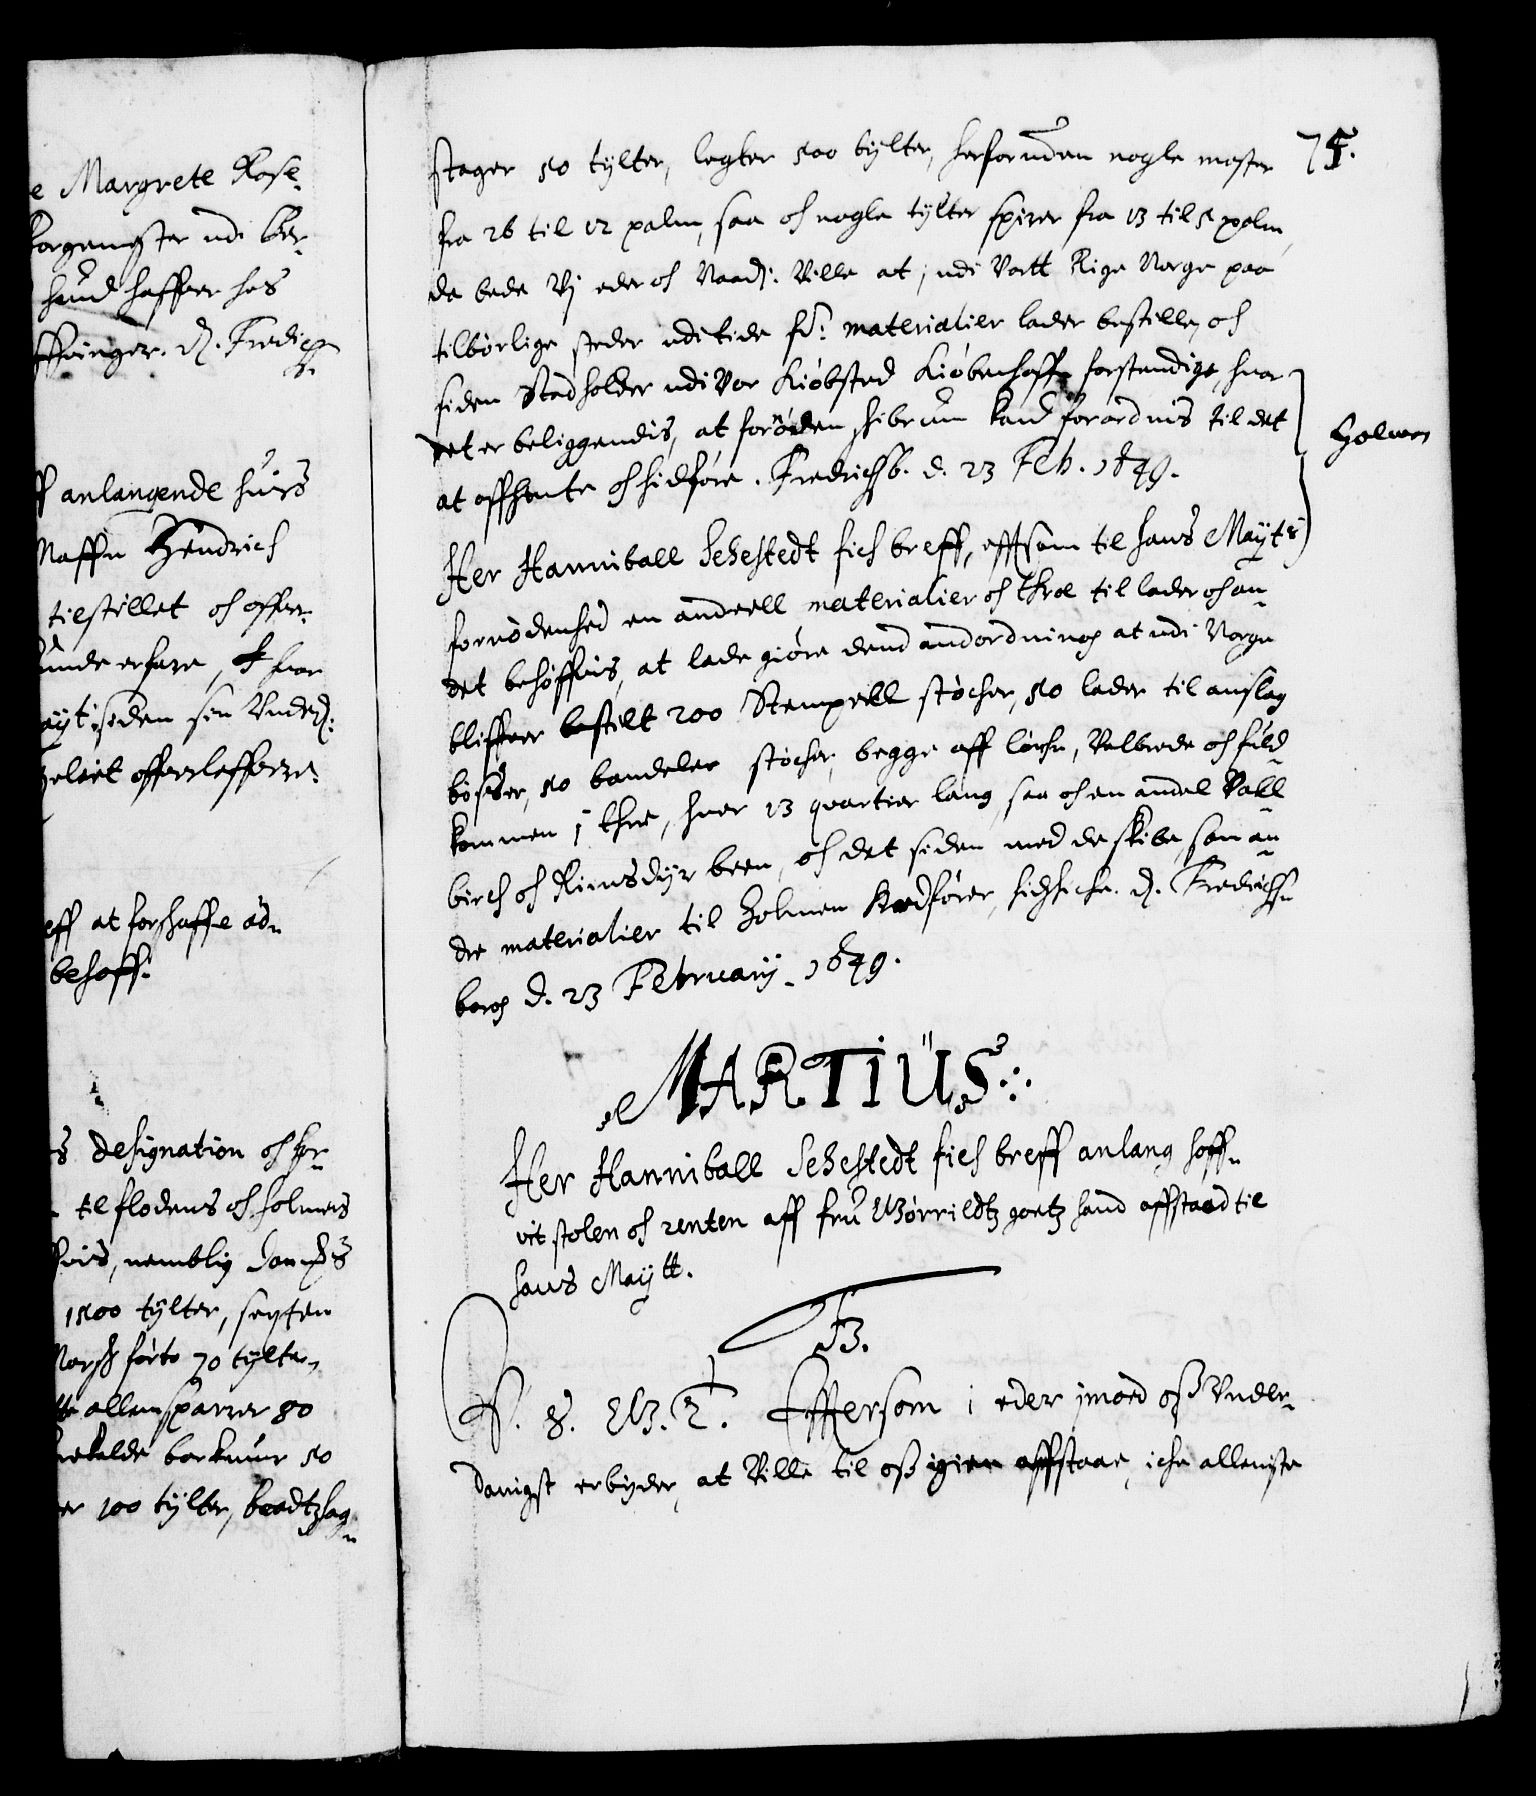 e Margrete Rose¬
borgemester udi Ber¬
hand haffuer hos
d. Fredichs
b.
ff anlangende huis
Maffn Hendrich
tilstillet och offuer¬
kunde erfare,
ayt: siden sin Underd:
offuerleffuere.
eff at forskaffe
behoff:
s designation och for¬
til flodens och holmens
ffuis, nemblig
1500 tylter, seyten
Norsk førte 70 tylter,
allem sparrer 80
50
er 100 tylter, baadtzhag¬
75.
stager 50 tylter, legter 500 tylter, herforuden nogle master
fra 26 til 12 palm, saa och nogle tylter spirer fra 13 til 5 palm,
da bede Vj eder och Naadj: Ville at j udi Vortt Rige Norge paa
tilbørlige steder udi tide for: materialier lader bestille, och
siden Stadholder udi Vor Kiøbsted Kiøbenhaffn forstendige, huor
det er beliggendis, at forøden skibrum kand forordnis til det
at affhente och hidføre. Fredrichsb. d. 23 Feb. 1649.
Holmen
Her Hanniball Sehestedt fich breff, efftsom til hans Mayts
fornødenhed en andeell materialier och thræ til lader och an¬
det behøffuis, at lade giøre dend andordning at udi Norge
bliffuer bestilt 200 Stempell støcher, 50 lader til anslag
bøsser, 50 bandeler støcher, begge aff løche, Velbrede och fuld¬
kommen i thræ, huer 13 quartier lang, saa och en andel Vall¬
birch och Rinsdyr been, och det siden med de skibe, som an¬
dre materialier til Holmen hidfører, hidskiche. d. Fredrichs¬
borg d. 23 February. 1649.
MARTIUS
Her Hanniball Sehestedt fich breff anlang hoff¬
vit stolen och renten aff fru Gørvildtz goetz hand affstaad til
hans Maytt.
F3.
C. 4. W. T. Efftersom i eder imod oss Under¬
danigst erbyder, at Ville til oss igien affstaae, iche alleniste